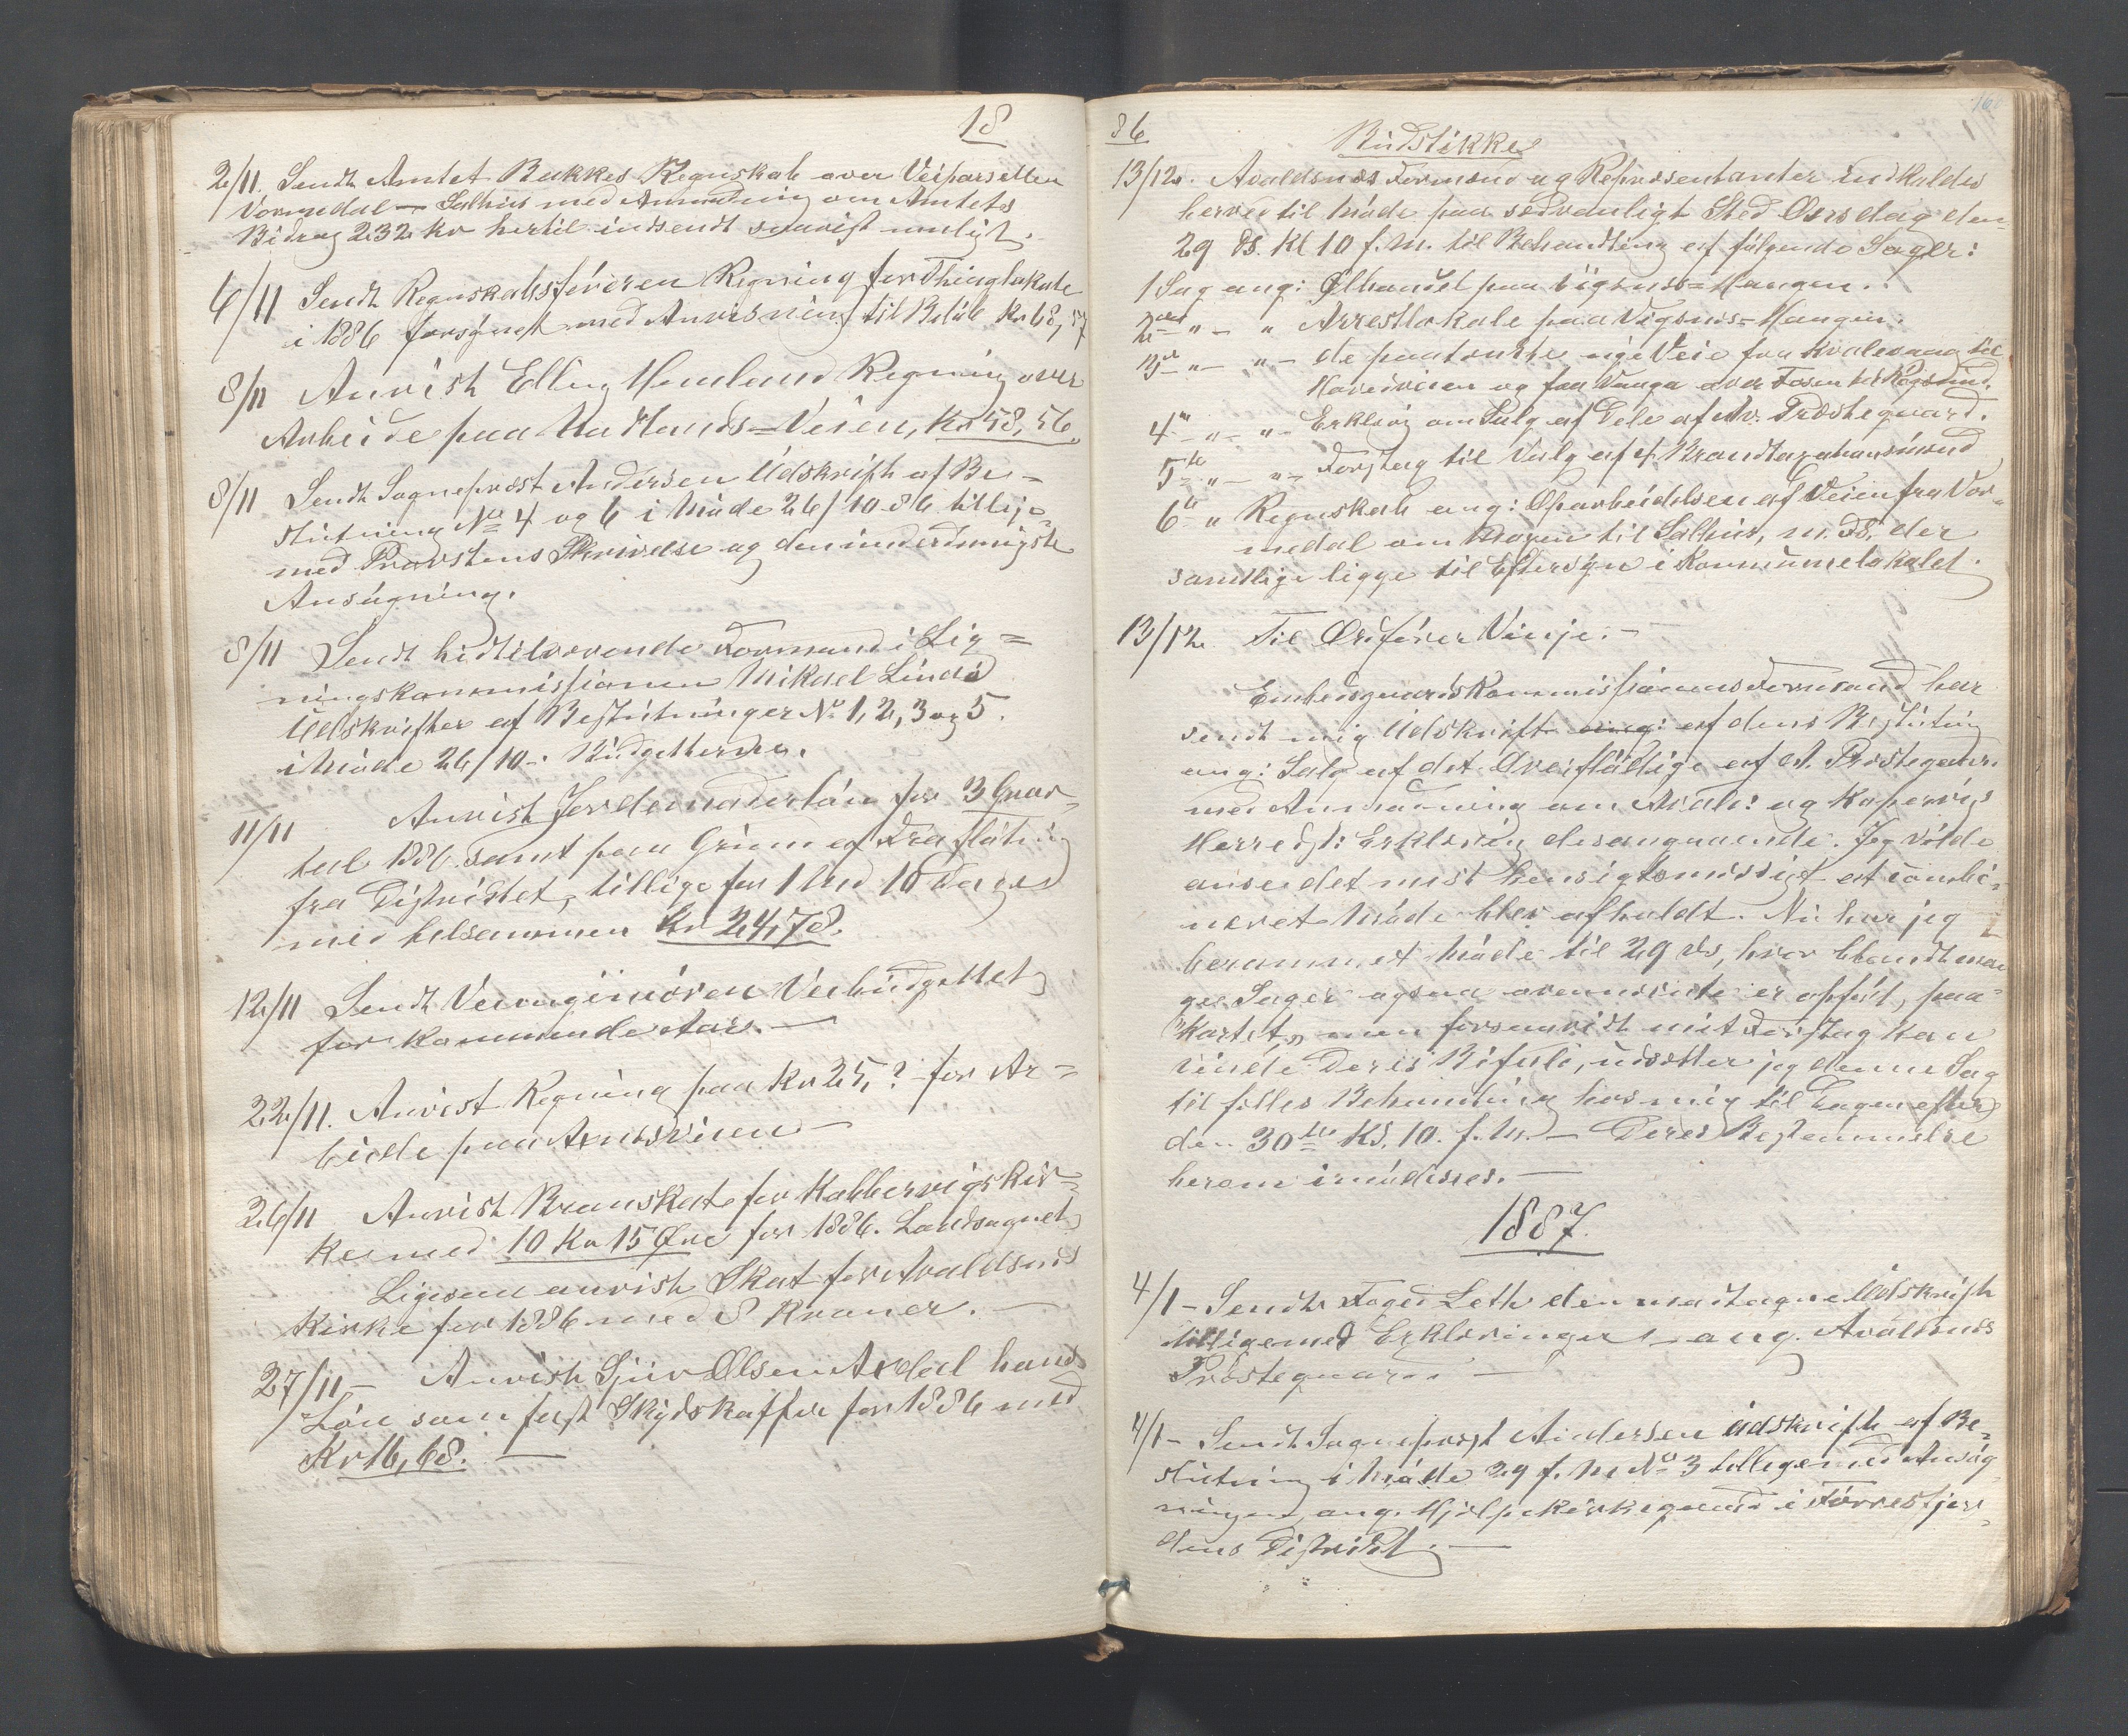 18
2/11. Sendt Amtet Bakkes Regnskab over Veiparsellen
Vormedal — Salhus med Anmodning om Amtets
Bidrag 232 Kr hertil indsendt snarist muligt.
6/11 Sendt Regnskabsføreren Regning for Thinglokale
i 1886 forsynet med Anvisning til Beløb Kr 68,57
8/11 Anvist Elling Hemland Regning over
Arbeide paa Nadlands=Veien, Kr 58,56.
8/11 Sendt Sognepræst Andersen Udskrift af Be=
slutning No 4 og 6 i Møde 26/10 86 tillige
med Provstens Skrivelse og den underdanigste
Ansøgning.
8/11 Sendt hidtilværende Formand i Lig=
ningskommissionen Mikael Lindø
Udskrifter af Beslutninger No 1, 2, 3 og 5.
i Møde 26/10. Budgetterne.
11/11 Anvist Jordemoderløn for 3 Qvar=
tal 1886 samt paa Grund af Fraflytning
fra Distriktet, tillige for 1 Md 10 Dage
med tilsammen Kr 24,78.
12/11 Sendt Veiingeniøren Veibudgettet
for kommende Aar. —
22/11. Anvist Regning paa Kr 25,? for Ar=
beide paa Amtsveien —
26/11 Anvist Brandskat for Kobbervigs Kir=
ke med 10 Kr 15 Øre for 1886. Landsognet
Ligesaa anvist Skat for Avaldsnes
Kirke for 1886 med 8 Kroner. —
27/11 — Anvist Sjur Olsen Ardal hans
Løn som fast Skydskaffer for 1886 med
Kr 16,68. —
86
Budstikke
13/12. Avaldsnes Formænd og Repræsentanter indkaldes
herved til Møde paa sedvanligt Sted Onsdag den
29 ds. Kl 10 f.M. til Behandling af følgende Sager:
1 Sag ang: Ølhandel paa Vigsnes=Haugen.
2den " — " Arrestlokale paa Vigsnes=Haugen.
3die " — " — de paatænkte nye Veie fra Kvalevaag til
Hovedveien og fra Vaaga over Fosen til Høgsund.
4de " — " — Erklæring om Salg af Dele af Av. Præstegaard.
5te " — " — Forslag til Valg af 4 Brandtaxationsmænd
6te " Regnskab ang: Oparbeidelsen af Veien fra Vor=
medal om Mogen til Salhus, m. Fl. der
samtlige ligge til Eftersyn i Kommunelokalet.
13/12. Til Ordfører Vinje. —
Embedsgaardskommissionens Formand har
sendt mig Udskrift ang: af dens Beslutning
ang: Salg af det Overflødige af A. Præstegaard
med Anmodning om Avalds: og Kopervigs
Herredst: Erklæring desangaaende. Jeg vilde
anse det mest hensigtsmæssigt at combi=
neret Møde blev afholdt. Nu har jeg
berammet Møde til 29 ds, hvor blandt man
ge Sager ogsaa ovennævnte er opført, paa
kortet, men forsaavidt mit Forslag kan
vinde Deres Bifald, udsætter jeg denne Sag
til fælles Behandling hos mig til Dagen efter
den 30te Kl. 10. f.M. — Deres Bestemmelse
herom imødesees. —
1887.
4/1 — Sendte Foged Leth den modtagne Udskrift
tilligemed Erklæringer — ang. Avaldsnes
Præstegaard —
4/1 — Sendt Sognepræst Andersen udskrift af Be=
slutning i Møde 29 f. M. No 3 tilligemed Ansøg=
ningen, ang. Hjelpekirkegaard i Førresfjor=
dens Distrikt. —